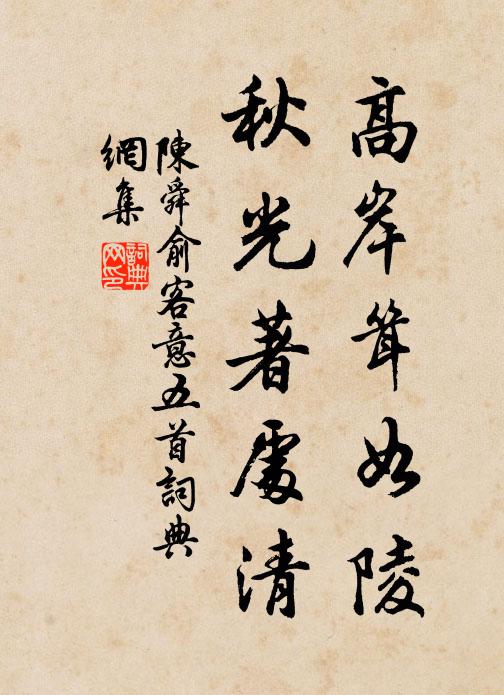 高岸耸如陵
秋光著處清
陳舜俞客意五首詞典
網集
詞典网印